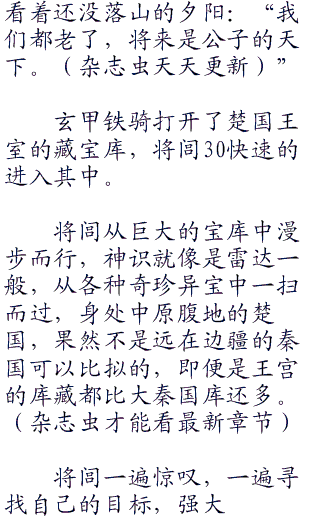 看着还没落山的夕阳：“我
们都老了，将来是公子的天
下。（杂志虫天天更新）”
玄甲铁骑打开了楚国王
室的藏宝库，将闾30快速的
进入其中。
将闾从巨大的宝库中漫
步而行，神识就像是雷达一
般，从各种奇珍异宝中一扫
而过，身处中原腹地的楚
国，果然不是远在边疆的秦
国可以比拟的，即便是王宫
的库藏都比大秦国库还多。
（杂志虫才能看最新章节）
将闾一遍惊叹，一遍寻
找自己的目标，强大